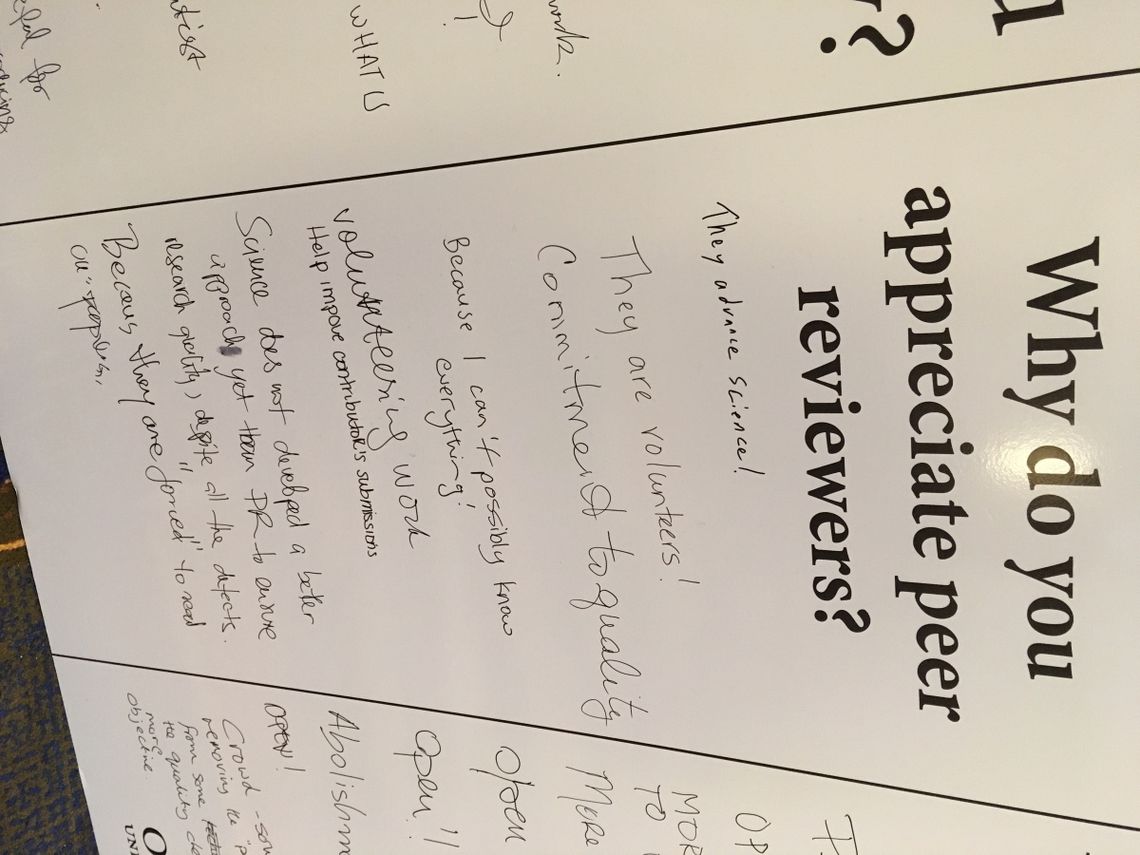 u
?
work.
!
WHAT U
for
Why do you
appreciate peer
reviewers?
They advance science!
They are volunteers!
Commitment to quality
Because I can't possibly know
everything!
volunteering work
Help improve contributor's submissions
Science does not developed a better
approach yet than PR to ensure
research quality, despite all the defects.
Because they are "forced" to read
our papers
OP
MOR
TO
More
Open
Open!!
Abolishm
OPEN!
Crowd-sou
removing the "p
from some
the quality che
more
objective.
O
UNI